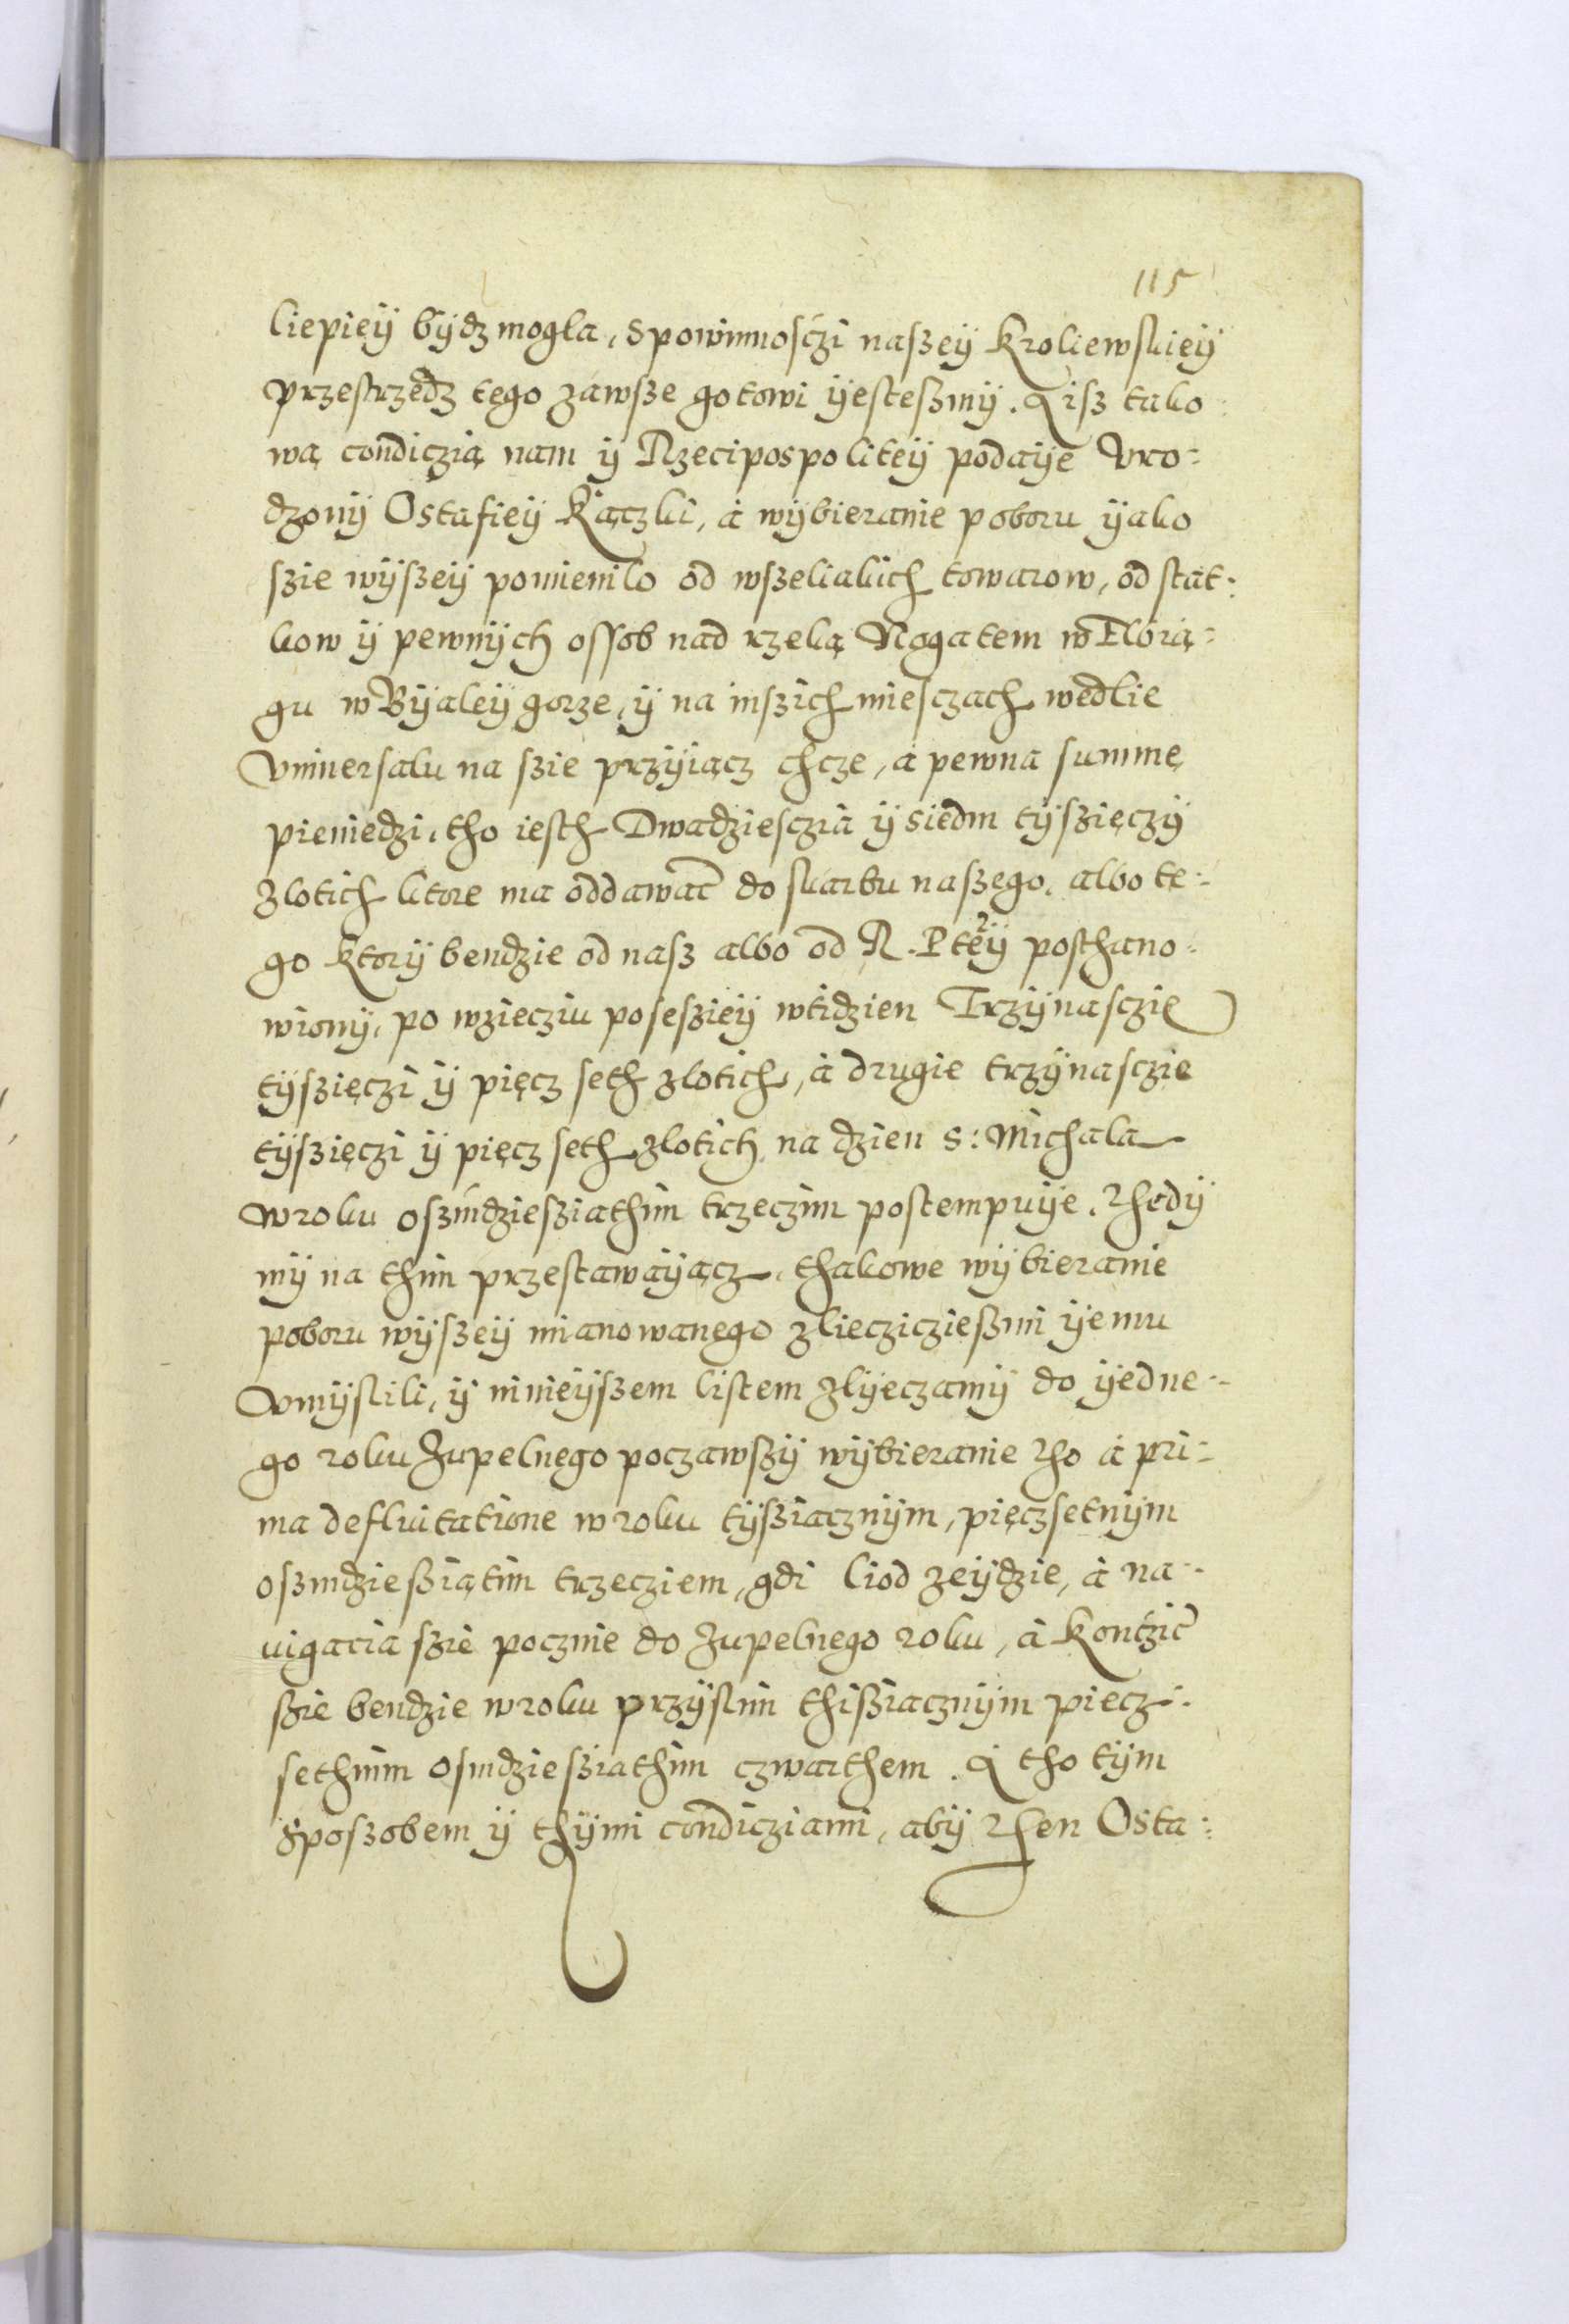 115
liepieÿ bÿdz mogla, s powinnosczi naszeÿ Kroliewskieÿ
przestrzedz tego zawsze gotowi ÿestesmÿ. A isz tako:
wą condiczią nam ÿ Rzecipospoliteÿ podaÿe Vro:
dzonÿ Ostafieÿ Kączki, à wÿbieranie poboru ÿako
szie wÿszeÿ pomienilo od wszeliakich towarow, od stat:
kow ÿ pewnÿch ossob nad rzeką Nogatem w Elbrią:
gu w Bÿaleÿ gorze, ÿ na inszich miesczach wedlie
Vniuersalu na szie przÿiącz chcze, à pewna summę
pieniedzi, tho iesth Dwadziesczia ÿ siedm tÿszięczÿ
zlotich ktore ma oddawac do skarbu naszego, albo te:
go ktorÿ bendzie od nasz albo od R. Pteÿ posthano:
wionÿ, po wziecziu poseszieÿ w tidzien Trzÿnasczie
tÿszięczi ÿ pięcz seth zlotich, à drugie trzÿnasczie
tÿszięczi ÿ pięcz seth zlotich na dzien S: Michala
w roku oszmdziesziathim trzeczim postempuÿe. Thedÿ
mÿ na thim przestawaÿącz, thakowe wÿbieranie
poboru wÿszeÿ mianowanego zliecziczieszmi ÿemu
vmÿslili, ÿ ninieÿszem listem zlÿeczamÿ do ÿedne:
go roku zupelnego poczawszÿ wÿbieranie tho à pri:
ma defluitatione w roku tÿsziacznÿm, pięczsetnÿm
oszmdziesziątim trzecziem, gdi liod zeÿdzie, à na:
uigacia szie pocznie do zupelnego roku, à konczic
szie bendzie w roku przÿslim thisziacznÿm piecz:
sethnim osmdziesziathim czwarthem. A tho tÿm
sposzobem ÿ thÿmi condicziami, abÿ then Osta: